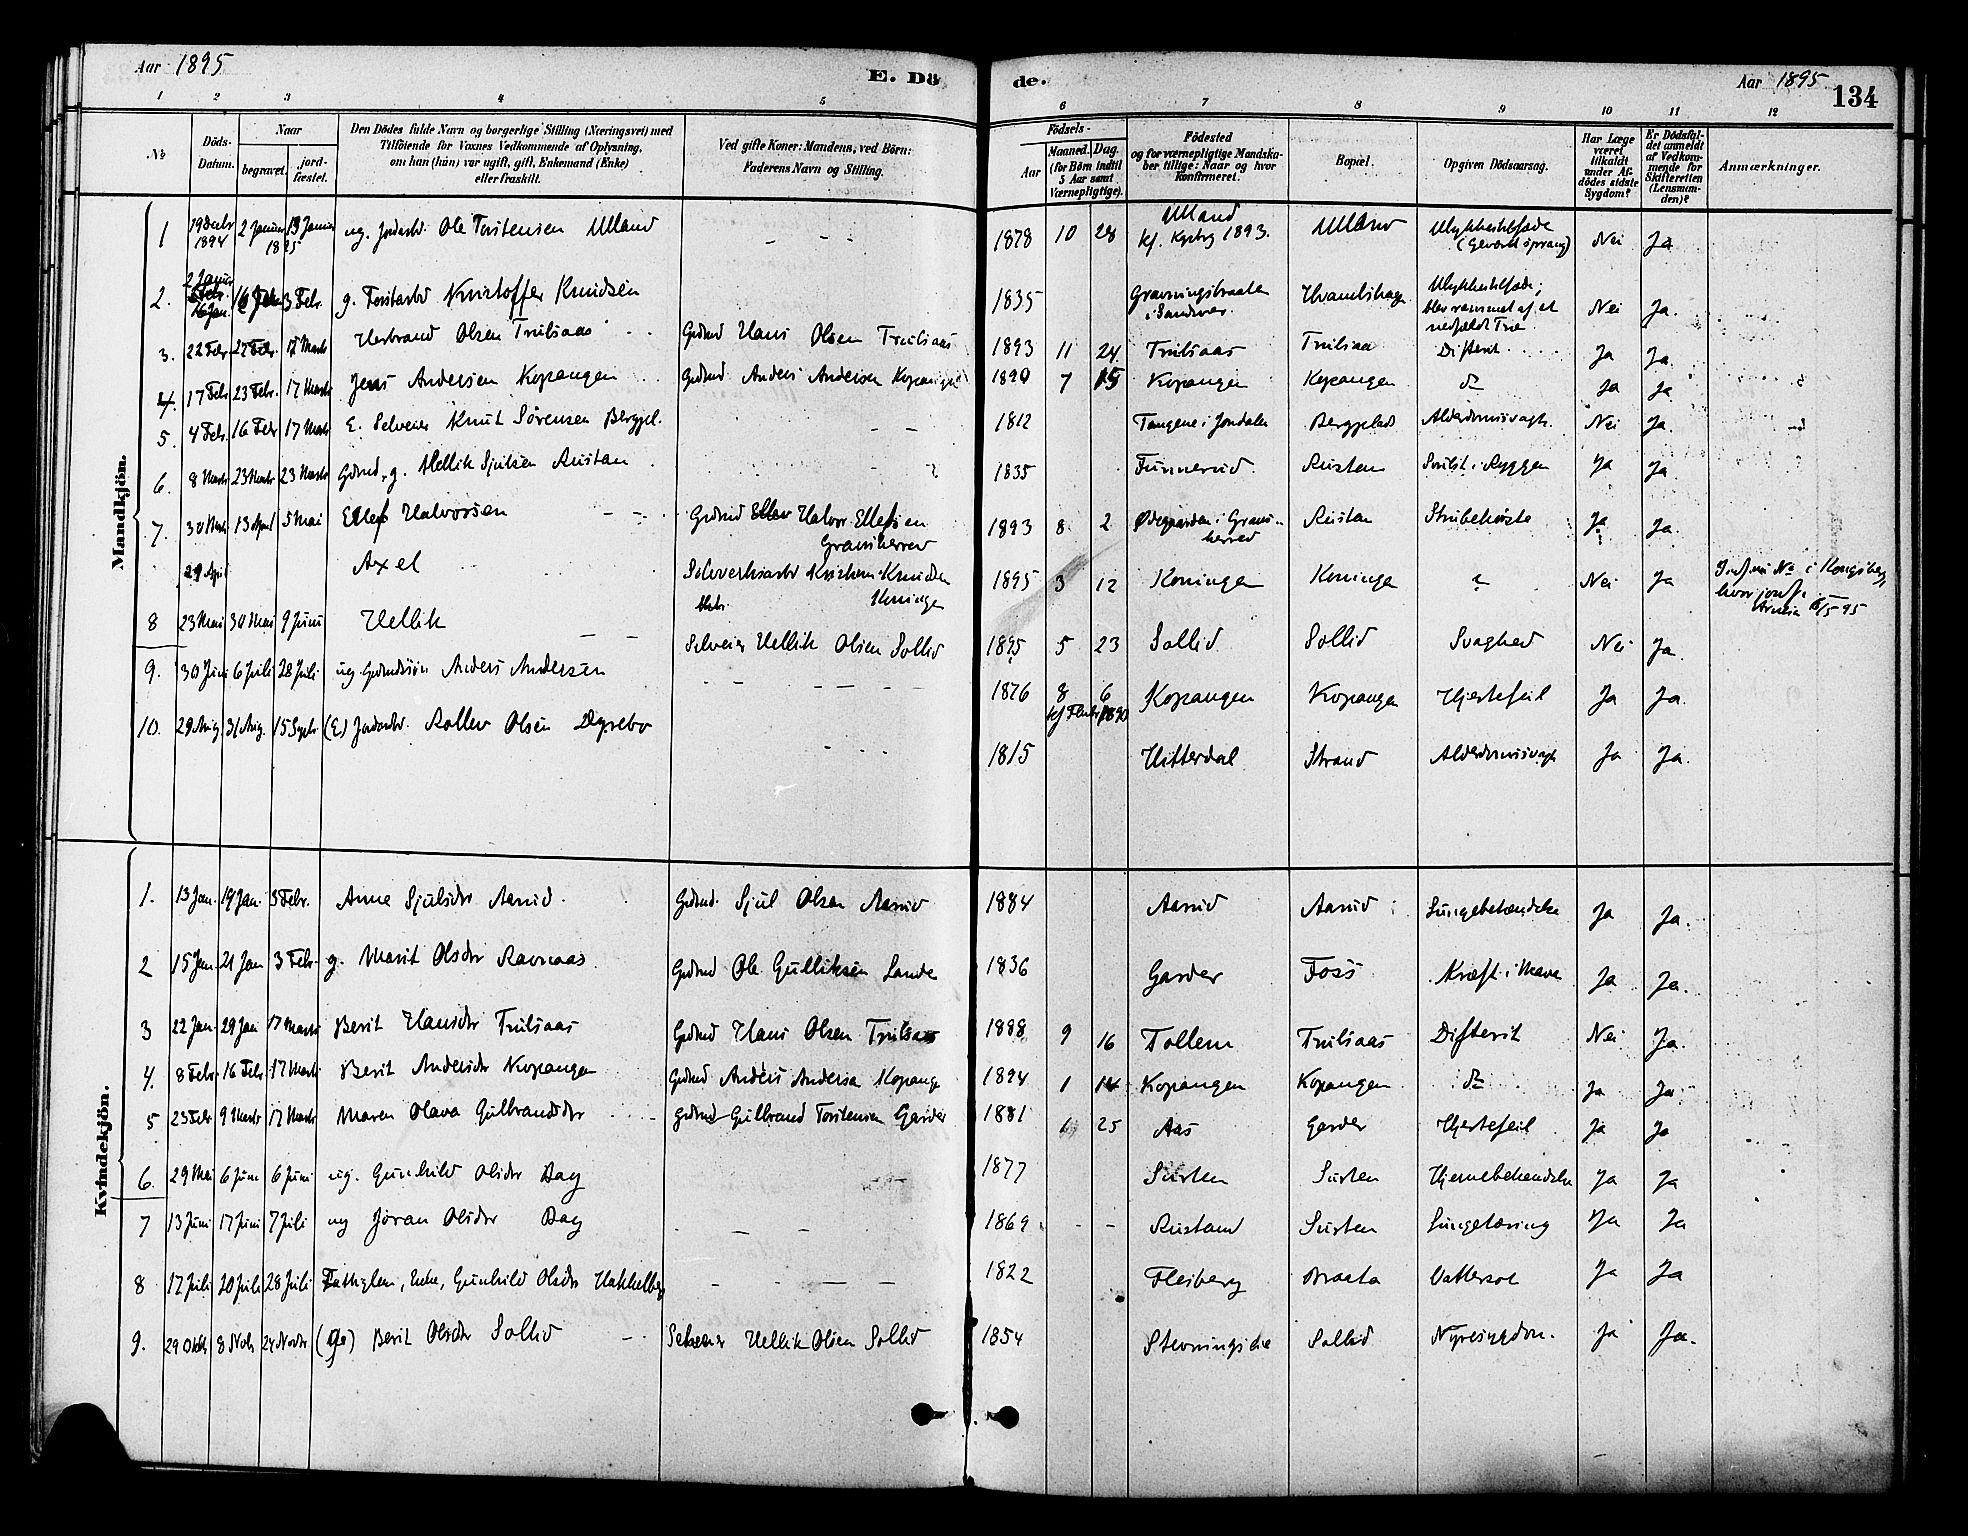 Aar 1895
E. Dö
de.
Aar 1895
134
1 2 3 4 5 6 7 8 9 10 11 12
No
Döds-Datum.
Naar
begravet.
jord-fæstet.
Den Dödes fulde Navn og borgerlige Stilling (Næringsvei) med
Tilföiende for Voxnes Vedkommende af Oplysning,
om han (hun) var ugift, gift, Enkemand (Enke)
eller fraskilt.
Ved gifte Koner: Mandens, ved Börn:
Faderens Navn og Stilling.
Födsels-
Aar
Maaned. Dag.
(for Börn indtil
5 Aar samt
Værnepligtige).
Födested
og for værnepligtige Mandska-
ber tillige: Naar og hvor
Konfirmeret.
Bopæl.
Opgiven Dödsaarsag.
Har Læge
været
tilkaldt
under Af-
dödes sidste
Sygdom?
Er Dödsfal-
det anmeldt
af Vedkom-
mende for
Skifteretten
(Lensman-
den)?
Anmærkninger.
Mandkjön.
1 19 Decbr 1894 2 Januar 13 Januar 1895 ug. Jordarbr. Ole Torstensen Ulland — — — 1878 10 28 Ulland kf. Kgsbrg 1893. Ulland Ulykkestilfælde (Geværet sprang) Nei Ja
2. 3 Febr. g. Forstarbd Kristoffer Knudsen 1835 Gravningsbraaten i Sandsvær. Ulykkestilfælde; blev rammet af et nedfældt Træ. Nei Ja.
3. 22 Febr 27 Febr. 17 Marts Herbrand Olsen Trulsaas Gaardmd Hans Olsen Trulsaas 1893 11 24 Trulsaas Trulsaas Difterit Ja Ja.
4. 17 Febr 23 Febr. 17 Marts Jens Andersen Kopangen Gaardmd Anders Andersen Kopangen 1890 7 15 Kopangen Kopangen do Ja Ja
5. 4 Febr. 16 Febr 17 Marts E. Selveier Knut Sørensen Bergpl. — — 1812 Tangene i Jondalen Bergplads Alderdomssvagh. Nei Ja.
6. 8 Marts 23 Marts 23 Marts Gdmd, g. Hellik Sjulsen Rustan 1835 Funnerud. Rusten Svulst i Ryggen Ja Ja.
7. 30 Marts 13 April 5 Mai Ellef Halvorsen — — Gdmd Halvor Ellefsen Gransherred 1893 8 2 Ødegaarden i Grans-herred Rustan Strubehoste Ja Ja.
29 April Axel Sølvverksarbd Kristian Knudsen Koningen 1895 3 12 Koningen Koningen Nei Ja
8 23 Mai 30 Mai 9 Juni Hellik — — Selveier Hellik Olsen Sollid 1895 5 23 Sollid Sollid Svaghed Nei Ja.
9. 30 Juni 6 Juli 28 Juli ug. Gdmdssøn Anders Andersen — — — — — 1876 8 6 Kopangen Kopangen Hjertefeil Ja Ja.
10. 29 Aug. 31 Aug. 15 Septr. (E) Jordarbr. Rollev Olsen Dyrebo 1815 Hitterdal Strand Alderdomssvagh Ja Ja.
Kvindekjön.
1. 13 Jan. 19 Jan. 3 Febr. Anne Sjulsdtr Aasrud. Gdmd. Sjul Olsen Aasrud 1884 Aasrud Aasrud Lungebetændelse Ja Ja.
2 15 Jan. 21 Jan 3 Febr. g. Marit Olsdtr Ravnaas. Gdmd Ole Gulliksen Lande 1836 Garder Foss Kræft i Maven Ja Ja.
3 22 Jan. 29 Jan 17 Marts Berit Hansdtr Trulsaas Gdmd Hans Olsen Trulsaas 1888 9 16 Tollem Trulsaas Difterit Nei Ja.
4. 8 Febr 16 Febr 17 Marts Berit Andersdtr Kopangen Gdmd Anders Andersen Kopangen 1894 1 14 Kopangen Kopangen do Ja Ja
5 23 Febr 9 Marts 17 Marts Maren Olava Gulbrandsdtr Gdmd Gulbrand Torstensen Garder 1881 6 25 Aas Garder Hjertefeil Ja Ja
6. 29 Mai 6 Juni 6 Juni ug. Gunhild Olsdtr Bag 1877 Surten Surten Hjernebetændelse Ja Ja
7 13 Juni 17 Juni 7 Juli ug Jøran Olsdtr Bag — — 1869 — — Rustand Surten Lungetæring Ja Ja
8 17 Juli 20 Juli 28 Juli Fattiglem, Enke, Gunhild Olsdtr Hakkelberg — — — — 1822 Flesberg Braata Vattersot Ja Ja
9. 29 Oktbr 8 Novb 24 Novbr (g) Berit Olsdtr Sollid — Selveier Hellik Olsen Sollid 1854 Stevningslie Sollid Nyresygdom. Ja Ja.